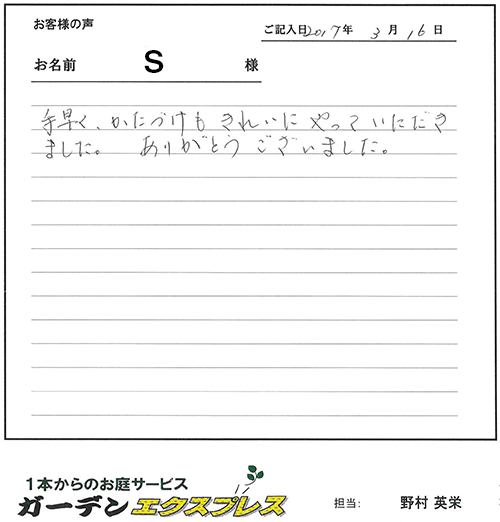 お客様の声
ご記入日2017年 3月16日
お名前 S 様
手早く、かたづけも きれいに やって いただき
ました。 ありがとう ございました。
1本からのお庭サービス
ガーデン エクスプレス
担当: 野村 英栄